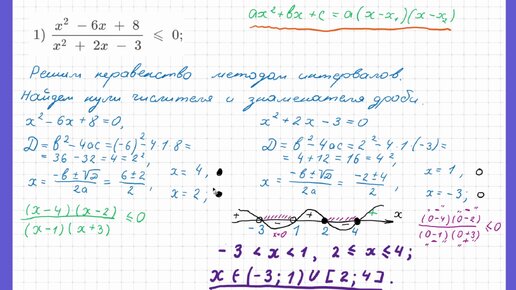 ax² + bx + c = a(x - x₁)(x - x₂)
1) (x² - 6x + 8)/(x² + 2x - 3) ⩽ 0;
Решим неравенство методом интервалов.
Найдем нули числителя и знаменателя дроби.
x² - 6x + 8 = 0,
D = b² - 4ac = (-6)² - 4·1·8 =
= 36 - 32 = 4 = 2²,
x = (-b ± √D)/2a = (6 ± 2)/2,
x = 4,
x = 2;
x² + 2x - 3 = 0
D = b² - 4ac = 2² - 4·1·(-3) =
= 4 + 12 = 16 = 4²,
x = (-b ± √D)/2a = (-2 ± 4)/2,
x = 1,
x = -3;
(x-4)(x-2)/(x-1)(x+3) ⩽ 0
+ - + - + x
-3 x=0 1 2 4
(0-4)(0-2)/(0-1)(0+3) ⩽ 0
-3 < x < 1, 2 ⩽ x ⩽ 4;
x ∈ (-3; 1) ∪ [2; 4].